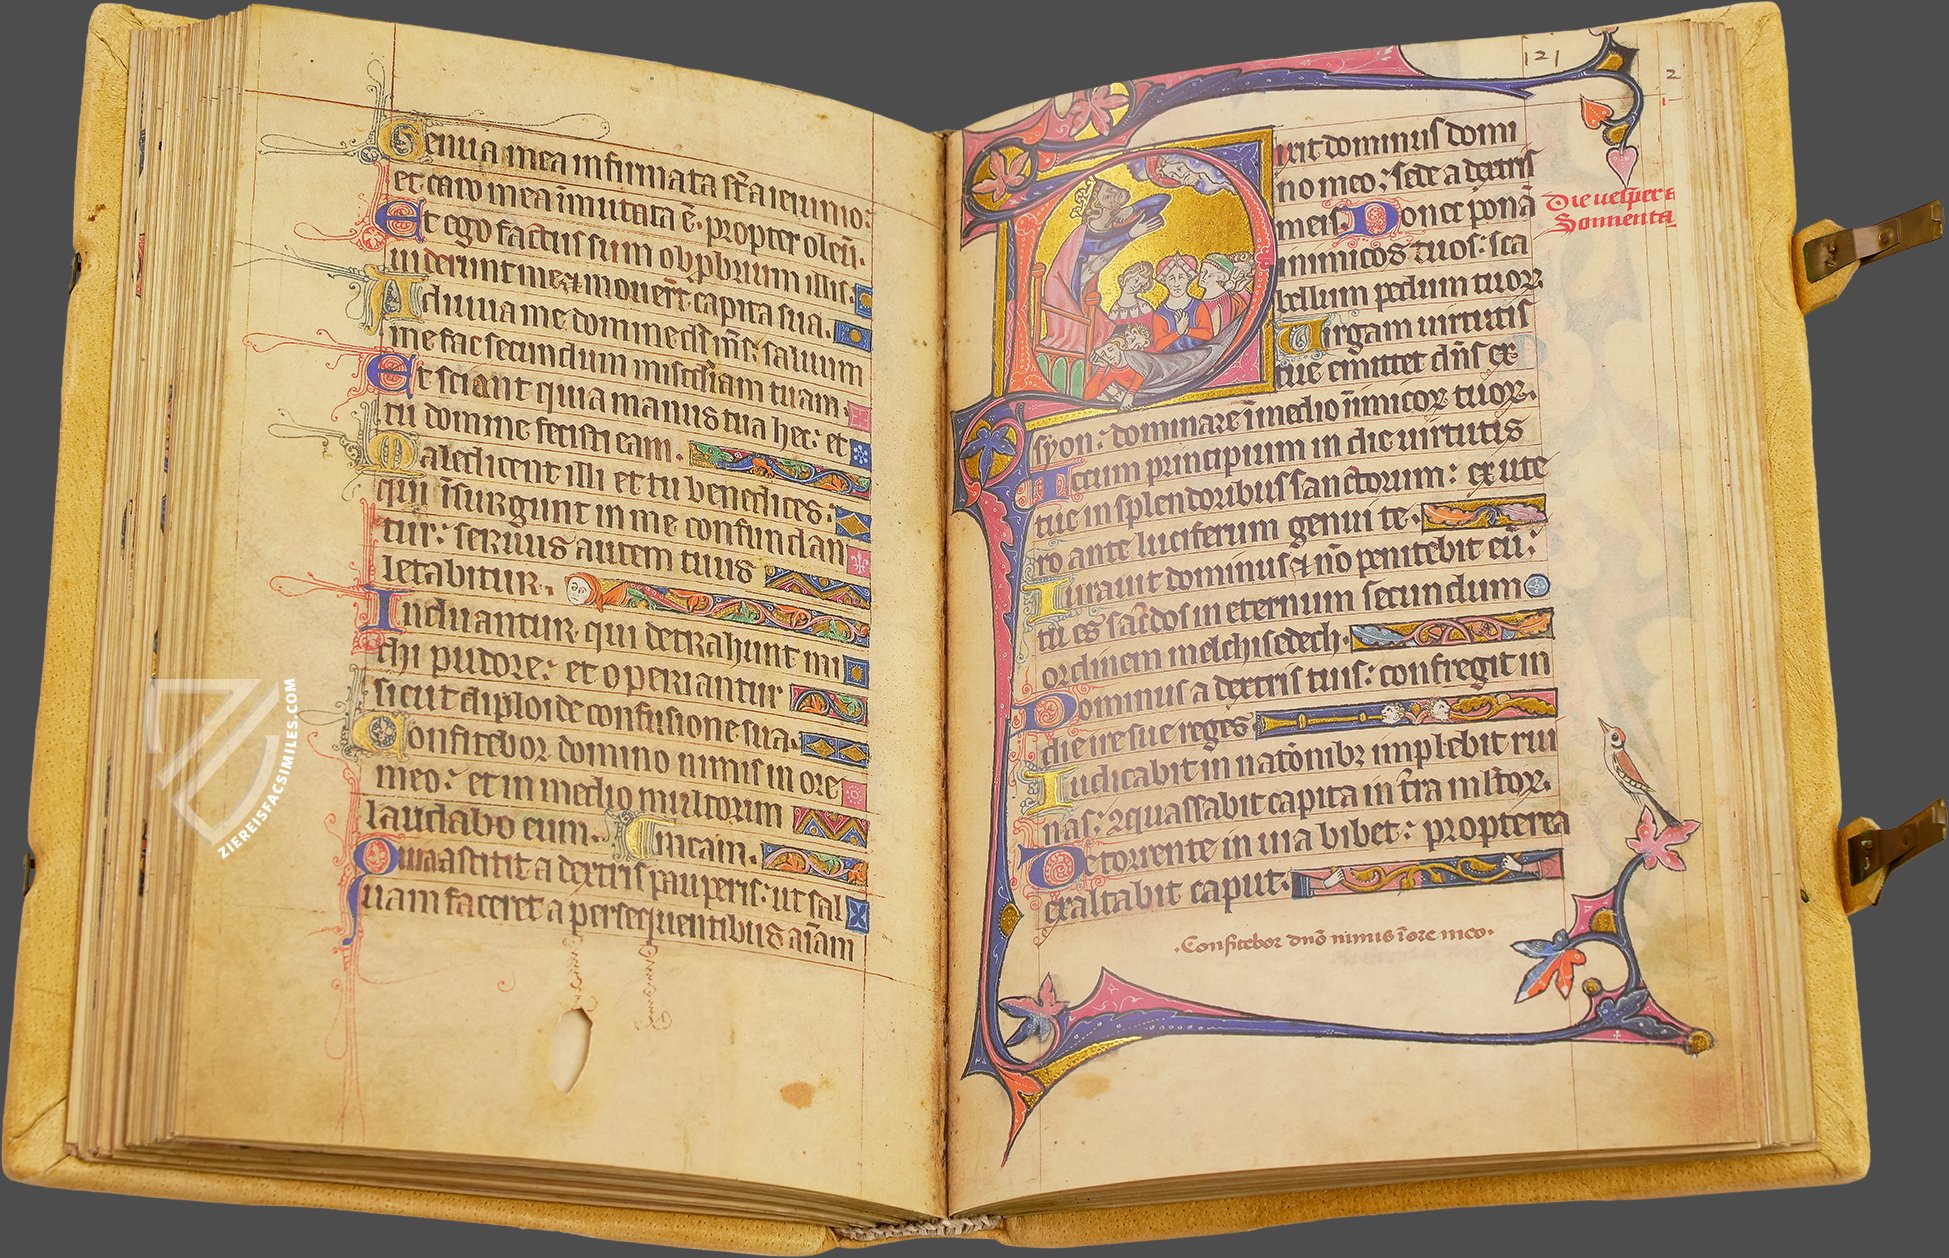 Genua mea infirmata sc̄t a ieiunio:
et caro mea īmutata ē. propter oleū.
Et ego factus sum obp̄brium illis.
uiderunt me ⁊ mouer̄t capita sua.
Adiuua me domine ds̄ ms̄: saluum
me fac secundum misc̄diam tuam.
Et sciant quia manus tua hec: et
tu domine fecisti eam.
Maledicent illi et tu benedices:
qui īsurgunt in me confundan
tur: seruus autem tuus
letabitur.
Induantur qui detrahunt mi
chi pudore: et operiantur
sicut diploide confusione sua.
Confitebor domino nimis in ore
meo: et in medio multorum
laudabo eum.
Quia astitit a dextris pauperis: ut sal
uam faceret a persequentibus aīam
121
2
Dixit dominus domi
no meo: sede a dextris
meis. Donec ponā
inimicos tuos: sca
bellum pedum tuor.
Uirgam uirtutis
tue emittet dn̄s ex
syon: dominare ī medio īnimicor tuor.
Tecum principium in die uirtutis
tue in splendoribus sanctorum: ex ute
ro ante luciferum genui te.
Iurauit dominus ⁊ nō penitebit eū:
tu es sac̄dos in eternum secundum
ordinem melchisedech.
Dominus a dextris tuis: confregit in
die ire sue reges
Iudicabit in natōnibꝫ implebit rui
nas: ꝯquassabit capita in t̄ra mltor.
De torrente in uia bibet: propterea
exaltabit caput.
Die uesper a
Sonnentag
.Confitebor dn̄o nimis ī ore meo.
ZIEREISFACSIMILES.COM